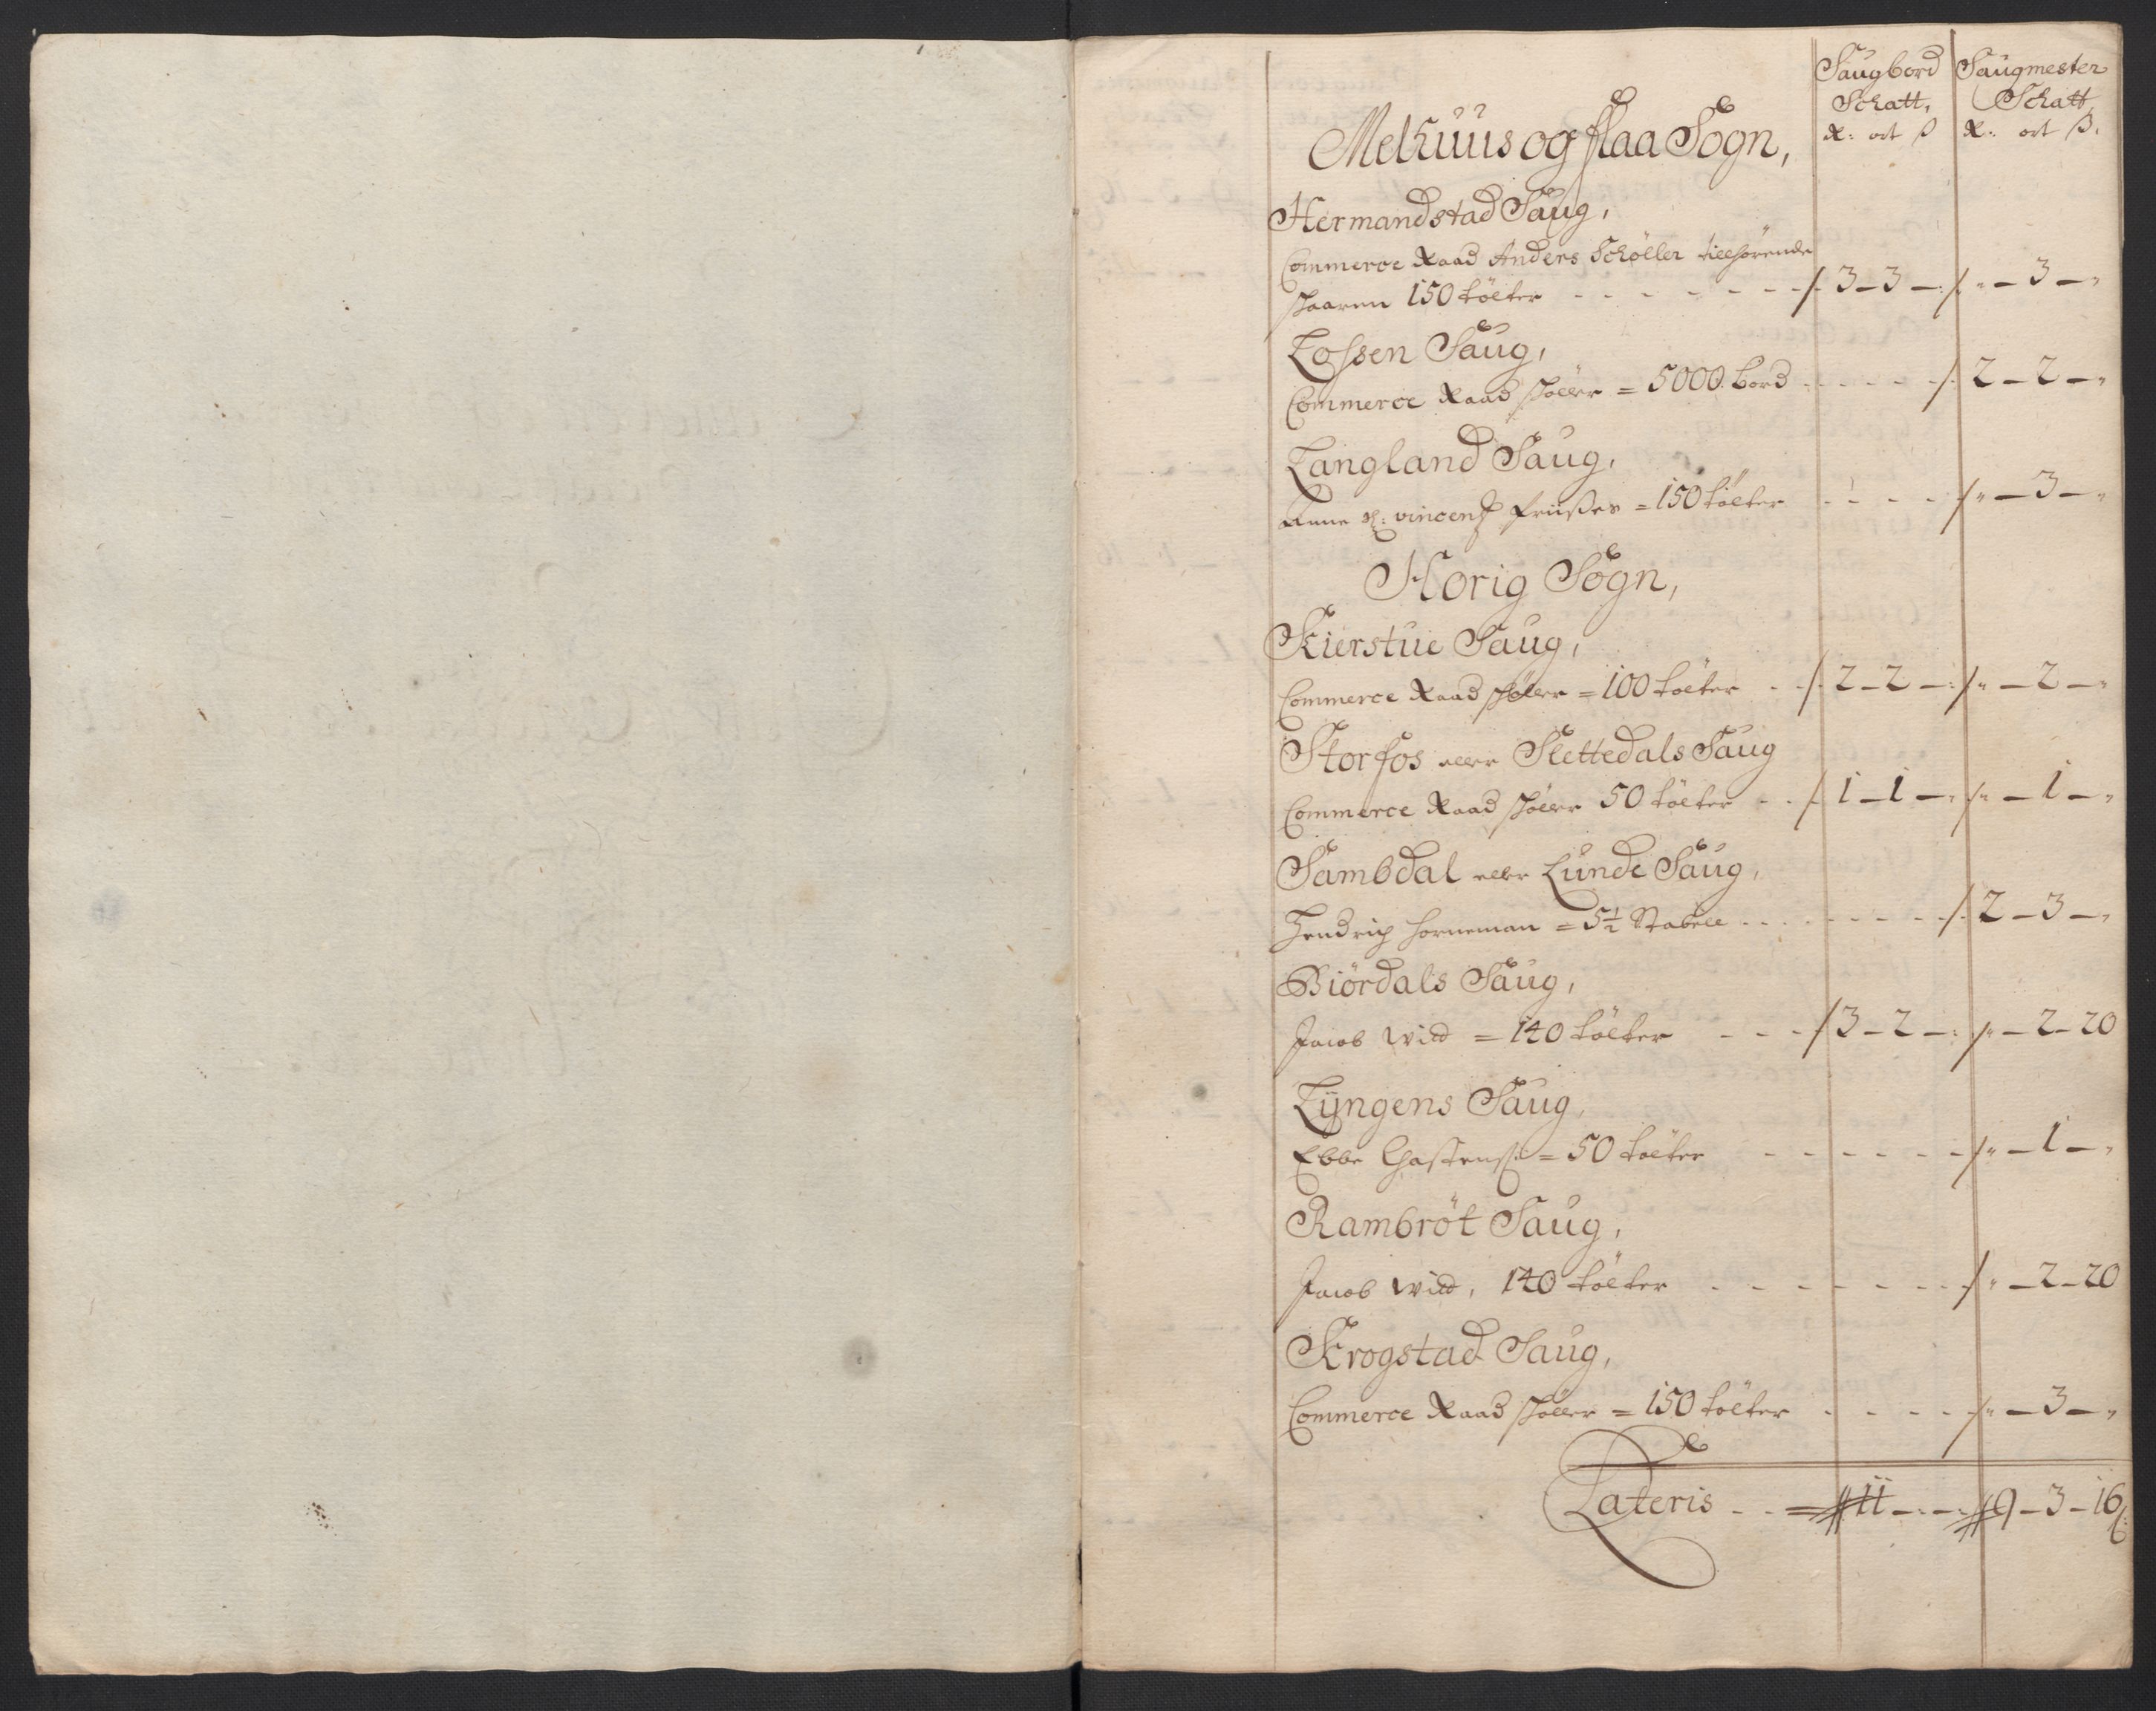 Saugbord Saugmester
Schatt, Schatt,
R: ort ß R: ort ß.
Melhuus og flaa Sogn,
Hermandstad Saug,
Commerce Raad Anders Schøller tilhørende
skaaren 150 tölter - - - - - - - 3 - 3 - „ - 3 - „
Lossen Saug,
Commerce Raad Schøller = 5000 bord - - - - - 2 - 2 - „
Langland Saug,
Anne sl: vincentz = 150 tölter - - - - „ - 3 - „
Horig Sogn,
Kierstue Saug,
Commerce Raad Schøller = 100 tölter - - 2 - 2 - „ - 2 - „
Storfos eller Slettedals Saug
Commerce Raad Schøller 50 tölter - - 1 - 1 - „ - 1 - „
Sambdal eller Lunde Saug,
Hendrich Horneman = 5½ Stabell - - - - - - - 2 - 3 - „
Biördals Saug,
Jacob Wild = 140 tölter - - - 3 - 2 - „ - 2 - 20
Lÿngens Saug,
Ebbe = 50 tölter - - - - - „ - 1 - „
Rambröt Saug,
Jacob Wild, 140 tölter - - - - - - - „ - 2 - 20
Krogstad Saug,
Commerce Raad Schøller = 150 tölter - - - - „ - 3 - „
Lateris - - = 11 - „ - „ 9 - 3 - 16